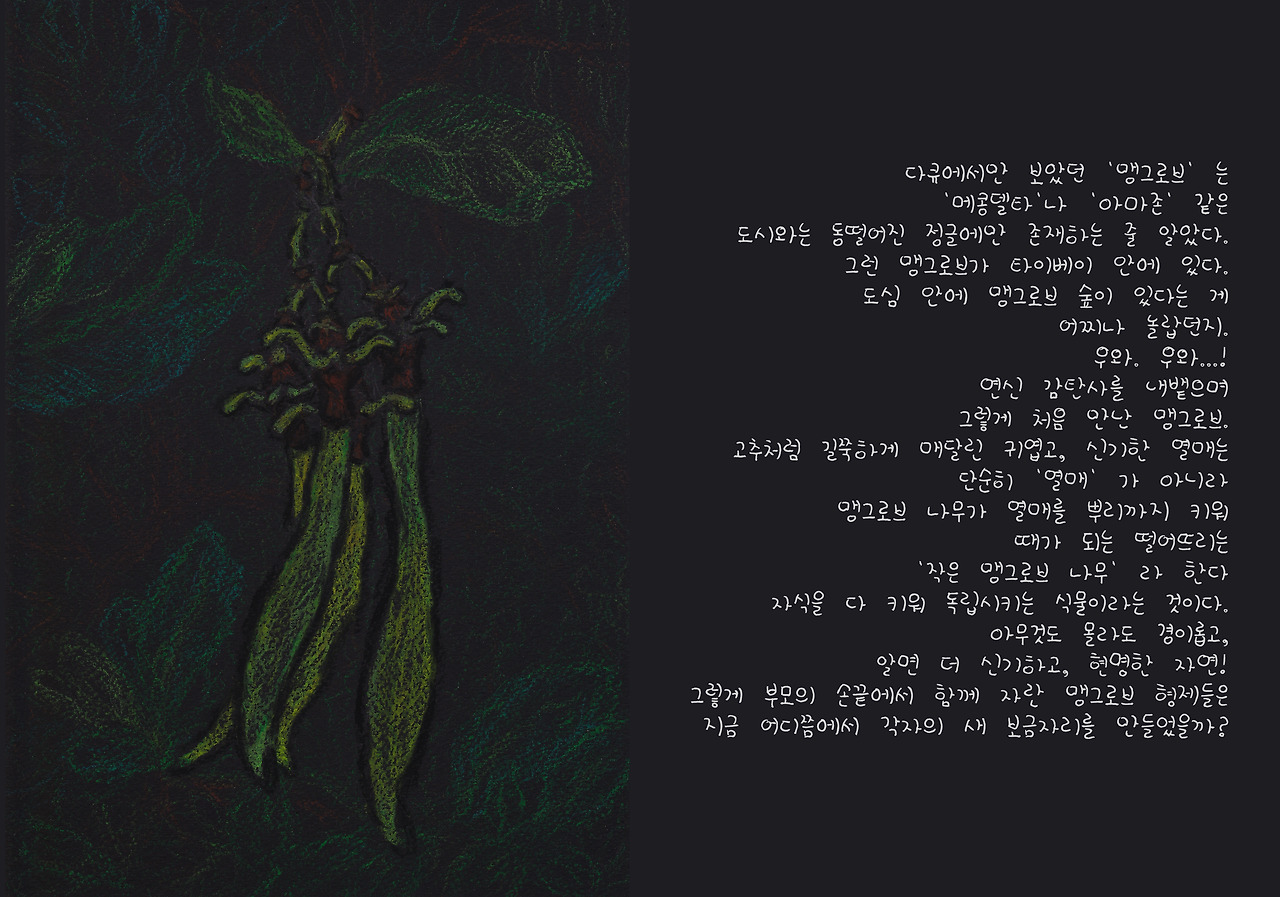 다큐에서만 보았던 '맹그로브' 는
'메콩델타'나 '아마존' 같은
도시와는 동떨어진 정글에만 존재하는 줄 알았다.
그런 맹그로브가 타이베이 안에 있다.
도심 안에 맹그로브 숲이 있다는 게
어찌나 놀랍던지.
우와. 우와...!
연신 감탄사를 내뱉으며
그렇게 처음 만난 맹그로브.
고추처럼 길쭉하게 매달린 귀엽고, 신기한 열매는
단순히 '열매' 가 아니라
맹그로브 나무가 열매를 뿌리까지 키워
때가 되는 떨어뜨리는
'작은 맹그로브 나무' 라 한다
자식을 다 키워 독립시키는 식물이라는 것이다.
아무것도 몰라도 경이롭고,
알면 더 신기하고, 현명한 자연!
그렇게 부모의 손끝에서 함께 자란 맹그로브 형제들은
지금 어디쯤에서 각자의 새 보금자리를 만들었을까?